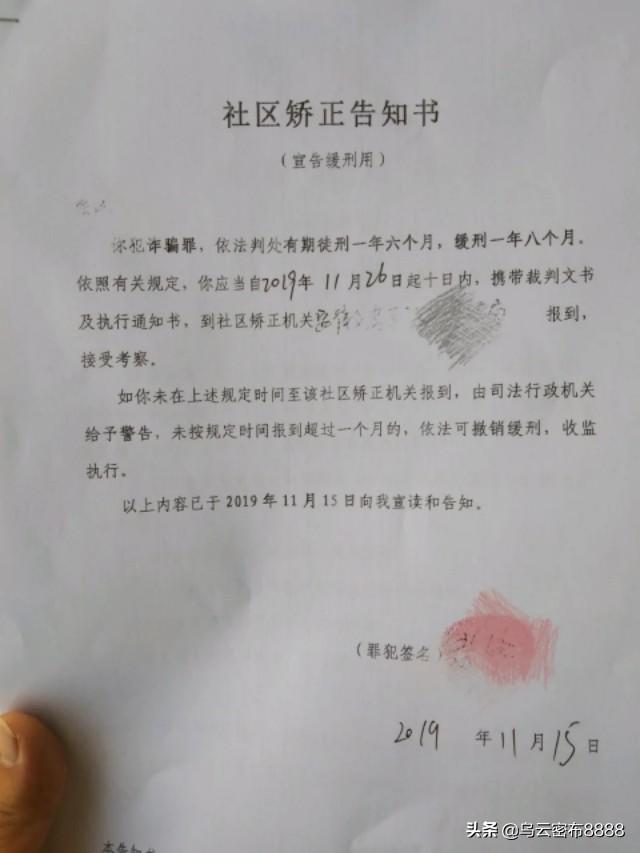 社区矫正告知书
（宣告缓刑用）
你犯诈骗罪，依法判处有期徒刑一年六个月，缓刑一年八个月。
依照有关规定，你应当自2019年11月26日起十日内，携带裁判文书
及执行通知书，到社区矫正机关 报到，
接受考察。
如你未在上述规定时间至该社区矫正机关报到，由司法行政机关
给予警告，未按规定时间报到超过一个月的，依法可撤销缓刑，收监
执行。
以上内容已于2019年11月15日向我宣读和告知。
（罪犯签名）
2019 年11月15日
本告知书
头条 @乌云密布8888